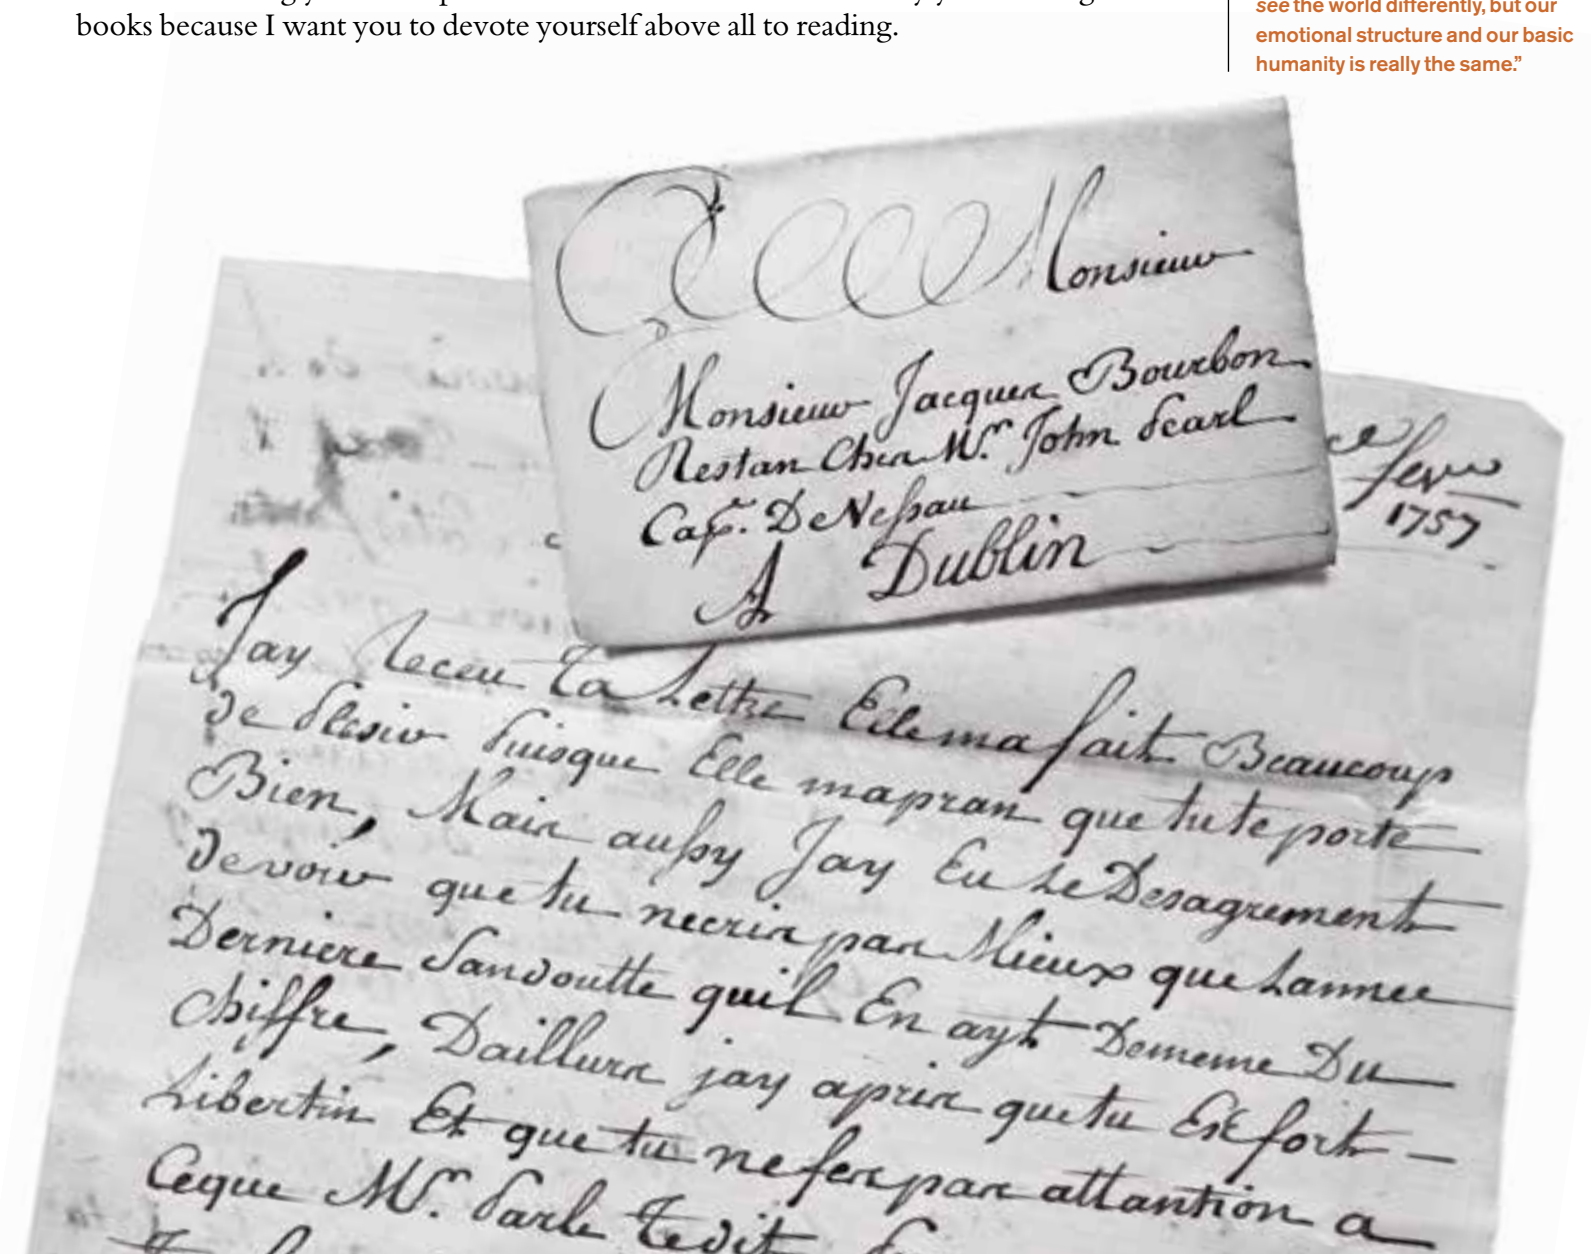 books because I want you to devote yourself above all to reading.
see the world differently, but our
emotional structure and our basic
humanity is really the same.”
Monsieur
Monsieur Jacques Bourbon
Restan Ches Mr. John Pearl
Cap. De Nessau
A Dublin
ce
fevr
1757
Jay Receu ta Lettre Elle ma fait Beaucoup
de Plesir Puisque Elle mapran que tu te porte
Bien, Mais aussy Jay Eu Le Desagrement
de voir que tu necris pas Mieux que Lannee
Derniere Sandoutte quil En ayt Dememe Du
chiffre, Dailleurs jay apris que tu Es fort
Libertin Et que tu ne fais pas attantion a
Ceque Mr. Parle te dit